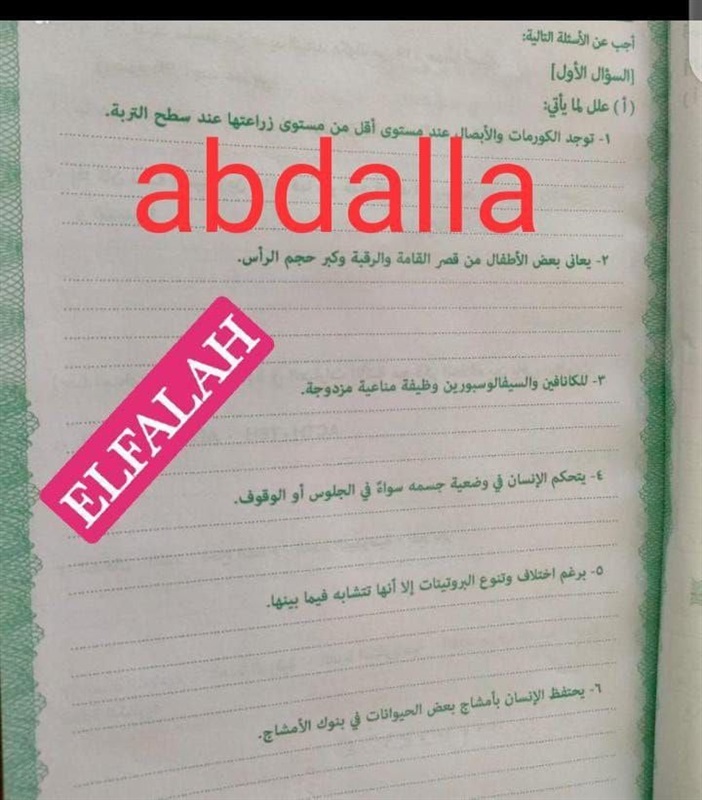 أجب عن الأسئلة التالية:
[السؤال الأول]
(أ) علل لما يأتي:
١- توجد الكورمات والأبصال عند مستوى أقل من مستوى زراعتها عند سطح التربة.
abdalla
٢- يعانى بعض الأطفال من قصر القامة والرقبة وكبر حجم الرأس.
ELFALAH
٣- للكانافين والسيفالوسبورين وظيفة مناعية مزدوجة.
٤- يتحكم الإنسان في وضعية جسمه سواءً في الجلوس أو الوقوف.
٥- برغم اختلاف وتنوع البروتينات إلا أنها تتشابه فيما بينها.
٦- يحتفظ الإنسان بأمشاج بعض الحيوانات في بنوك الأمشاج.